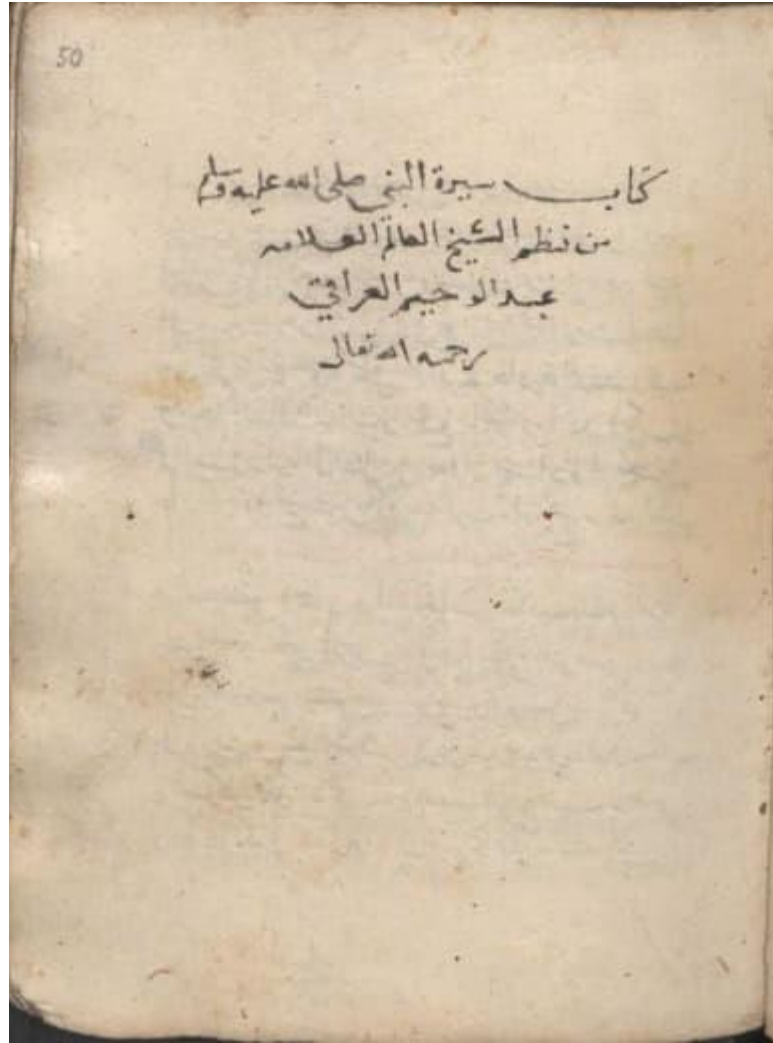 50
كتاب سيرة النبي صلى الله عليه وسلم
من نظم الشيخ العالم العلامه
عبد الرحيم العراقي
رحمه الله تعالى